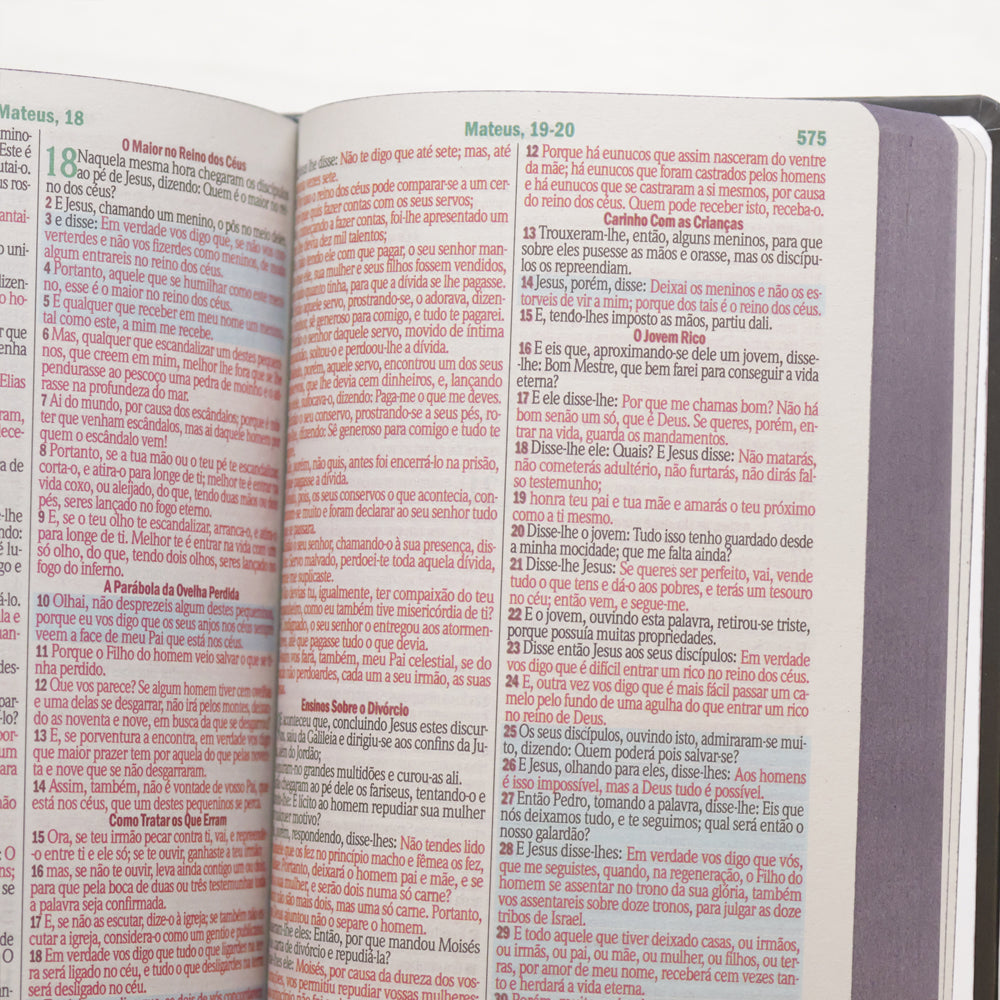 Mateus, 18
mino-
Este é
utai-o.
us ros-
antai-
o uni-
dizen-
o ho-
r que
enha
Elias
ram,
dece-
a de
-lhe
ndo:
ê lu-
go e
á-lo.
la e
man-
des-
par-
-lo?
por-
um
ara
não
: O
ns;
se
de
O
un-
O Maior no Reino dos Céus
18 Naquela mesma hora chegaram os discípulos
ao pé de Jesus, dizendo: Quem é o maior no rei-
no dos céus?
2 E Jesus, chamando um menino, o pôs no meio deles,
3 e disse: Em verdade vos digo que, se não vos con-
verterdes e não vos fizerdes como meninos, de modo
algum entrareis no reino dos céus.
4 Portanto, aquele que se humilhar como este meni-
no, esse é o maior no reino dos céus.
5 E qualquer que receber em meu nome um menino
tal como este, a mim me recebe.
6 Mas, qualquer que escandalizar um destes pequeni-
nos, que creem em mim, melhor lhe fora que se lhe
pendurasse ao pescoço uma pedra de moinho e o ati-
rasse na profundeza do mar.
7 Ai do mundo, por causa dos escândalos; porque é mis-
ter que venham escândalos, mas ai daquele homem por
quem o escândalo vem!
8 Portanto, se a tua mão ou o teu pé te escandalizar,
corta-o, e atira-o para longe de ti; melhor te é entrar na
vida coxo, ou aleijado, do que, tendo duas mãos ou dois
pés, seres lançado no fogo eterno.
9 E, se o teu olho te escandalizar, arranca-o, e atira-o
para longe de ti. Melhor te é entrar na vida com um
só olho, do que, tendo dois olhos, seres lançado no
fogo do inferno.
A Parábola da Ovelha Perdida
10 Olhai, não desprezeis algum destes pequeninos,
porque eu vos digo que os seus anjos nos céus sempre
veem a face de meu Pai que está nos céus.
11 Porque o Filho do homem veio salvar o que se ti-
nha perdido.
12 Que vos parece? Se algum homem tiver cem ovelhas
e uma delas se desgarrar, não irá pelos montes, deixan-
do as noventa e nove, em busca da que se desgarrou?
13 E, se porventura a encontra, em verdade vos digo
que maior prazer tem por aquela do que pelas noven-
ta e nove que se não desgarraram.
14 Assim, também, não é vontade de vosso Pai, que
está nos céus, que um destes pequeninos se perca.
Como Tratar os Que Erram
15 Ora, se teu irmão pecar contra ti, vai, e repreende-
-o entre ti e ele só; se te ouvir, ganhaste a teu irmão;
16 mas, se não te ouvir, leva ainda contigo um ou dois,
para que pela boca de duas ou três testemunhas toda
a palavra seja confirmada.
17 E, se não as escutar, dize-o à igreja; se também não es-
cutar a igreja, considera-o como um gentio e publicano.
18 Em verdade vos digo que tudo o que ligardes na ter-
ra será ligado no céu, e tudo o que desligardes na terra
será desligado no céu.
Mateus, 19-20
575
lhe disse: Não te digo que até sete; mas, até
vezes sete.
o reino dos céus pode comparar-se a um cer-
que quis fazer contas com os seus servos;
começando a fazer contas, foi-lhe apresentado um
devia dez mil talentos;
tendo ele com que pagar, o seu senhor man-
ele, sua mulher e seus filhos fossem vendidos,
quanto tinha, para que a dívida se lhe pagasse.
aquele servo, prostrando-se, o adorava, dizen-
sê generoso para comigo, e tudo te pagarei.
o senhor daquele servo, movido de íntima
soltou-o e perdoou-lhe a dívida.
porém, aquele servo, encontrou um dos seus
que lhe devia cem dinheiros, e, lançando
sufocava-o, dizendo: Paga-me o que me deves.
o seu conservo, prostrando-se a seus pés, ro-
dizendo: Sê generoso para comigo e tudo te
porém, não quis, antes foi encerrá-lo na prisão,
pagasse a dívida.
pois, os seus conservos o que acontecia, con-
muito e foram declarar ao seu senhor tudo
passara.
o seu senhor, chamando-o à sua presença, dis-
servo malvado, perdoei-te toda aquela dívida,
me suplicaste.
devias tu, igualmente, ter compaixão do teu
como eu também tive misericórdia de ti?
indignado, o seu senhor o entregou aos atormen-
até que pagasse tudo o que devia.
vos fará, também, meu Pai celestial, se do
não perdoardes, cada um a seu irmão, as suas
Ensinos Sobre o Divórcio
aconteceu que, concluindo Jesus estes discur-
saiu da Galileia e dirigiu-se aos confins da Ju-
além do Jordão;
grandes multidões e curou-as ali.
chegaram ao pé dele os fariseus, tentando-o e
-lhe: É lícito ao homem repudiar sua mulher
qualquer motivo?
porém, respondendo, disse-lhes: Não tendes lido
que os fez no princípio macho e fêmea os fez,
Portanto, deixará o homem pai e mãe, e se
sua mulher, e serão dois numa só carne?
não são mais dois, mas uma só carne. Portanto,
Deus ajuntou não o separe o homem.
-lhe eles: Então, por que mandou Moisés
carta de divórcio e repudiá-la?
-lhes ele: Moisés, por causa da dureza dos vos-
vos permitiu repudiar vossas mulheres;
12 Porque há eunucos que assim nasceram do ventre
da mãe; há eunucos que foram castrados pelos homens
e há eunucos que se castraram a si mesmos, por causa
do reino dos céus. Quem pode receber isto, receba-o.
Carinho Com as Crianças
13 Trouxeram-lhe, então, alguns meninos, para que
sobre eles pusesse as mãos e orasse, mas os discípu-
los os repreendiam.
14 Jesus, porém, disse: Deixai os meninos e não os es-
torveis de vir a mim; porque dos tais é o reino dos céus.
15 E, tendo-lhes imposto as mãos, partiu dali.
O Jovem Rico
16 E eis que, aproximando-se dele um jovem, disse-
-lhe: Bom Mestre, que bem farei para conseguir a vida
eterna?
17 E ele disse-lhe: Por que me chamas bom? Não há
bom senão um só, que é Deus. Se queres, porém, en-
trar na vida, guarda os mandamentos.
18 Disse-lhe ele: Quais? E Jesus disse: Não matarás,
não cometerás adultério, não furtarás, não dirás fal-
so testemunho;
19 honra teu pai e tua mãe e amarás o teu próximo
como a ti mesmo.
20 Disse-lhe o jovem: Tudo isso tenho guardado desde
a minha mocidade; que me falta ainda?
21 Disse-lhe Jesus: Se queres ser perfeito, vai, vende
tudo o que tens e dá-o aos pobres, e terás um tesouro
no céu; então vem, e segue-me.
22 E o jovem, ouvindo esta palavra, retirou-se triste,
porque possuía muitas propriedades.
23 Disse então Jesus aos seus discípulos: Em verdade
vos digo que é difícil entrar um rico no reino dos céus.
24 E, outra vez vos digo que é mais fácil passar um ca-
melo pelo fundo de uma agulha do que entrar um rico
no reino de Deus.
25 Os seus discípulos, ouvindo isto, admiraram-se mui-
to, dizendo: Quem poderá pois salvar-se?
26 E Jesus, olhando para eles, disse-lhes: Aos homens
é isso impossível, mas a Deus tudo é possível.
27 Então Pedro, tomando a palavra, disse-lhe: Eis que
nós deixamos tudo, e te seguimos; qual será então o
nosso galardão?
28 E Jesus disse-lhes: Em verdade vos digo que vós,
que me seguistes, quando, na regeneração, o Filho do
homem se assentar no trono da sua glória, também
vos assentareis sobre doze tronos, para julgar as doze
tribos de Israel.
29 E todo aquele que tiver deixado casas, ou irmãos,
ou irmãs, ou pai, ou mãe, ou mulher, ou filhos, ou ter-
ras, por amor de meu nome, receberá cem vezes tan-
to e herdará a vida eterna.